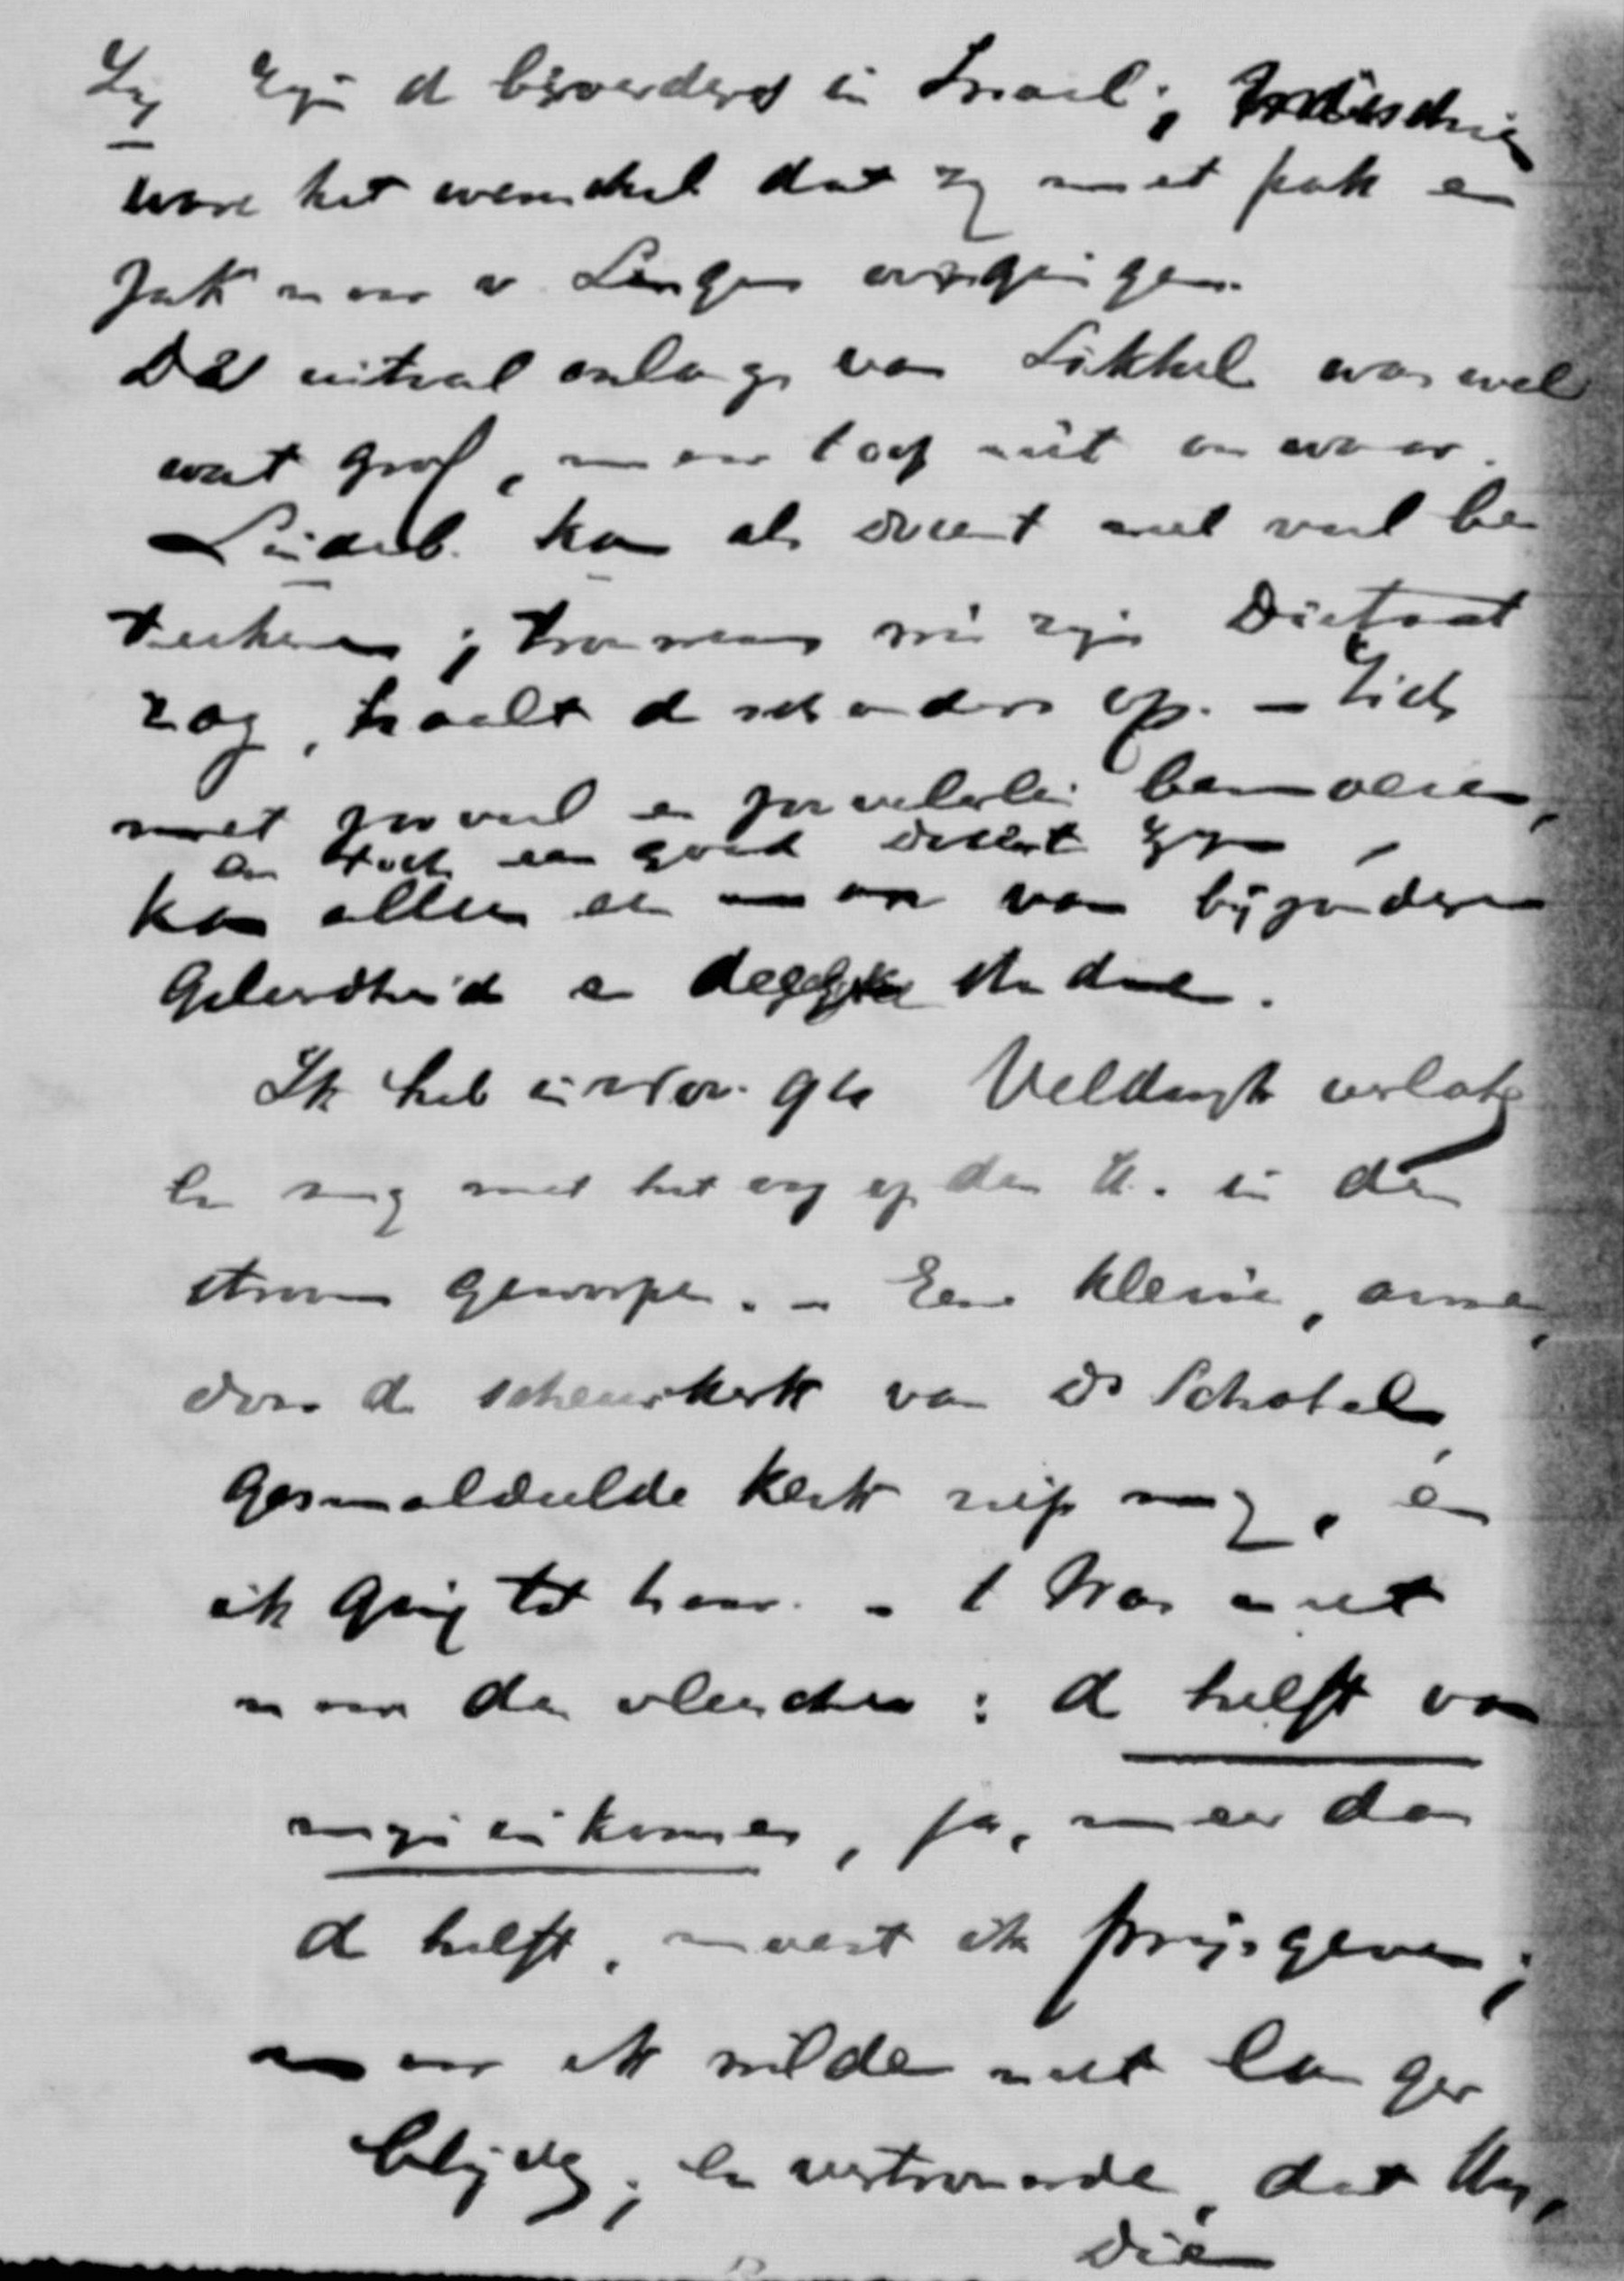 Zij zijn de beroerders in Israel;
ware het wenschel. dat zij met pak en
zak naar v. Lingen overgingen.
De uitval onlangs van Sikkel was wel
wat grof, maar toch niet onwaar.
Lindeb. kan als docent niet veel be
teekenen; trouwens wie zijn Dictaat
zag, haalt de schouders op. – Zich
met zooveel en zoovelerlei bemoeien,
en toch een goed docent zijn,
kan alleen een man van bijzondere
Geleerdheid en degelijke studie.
Ik heb in Nov. Veldwijk verlaten
en mij met het oog op den H. in den
stroom geworpen. – Eene kleine, arme,
door de scheurkerk van Ds Schotel
gesmaldeelde kerk riep mij, en
ik ging tot haar. – 't Was niet
naar den vleesche: de helft van
mijn inkomen, ja, meer dan
de helft, moest ik prijsgeven;
maar ik wilde niet langer
blijven; en vertrouwde, dat Hij,
Die